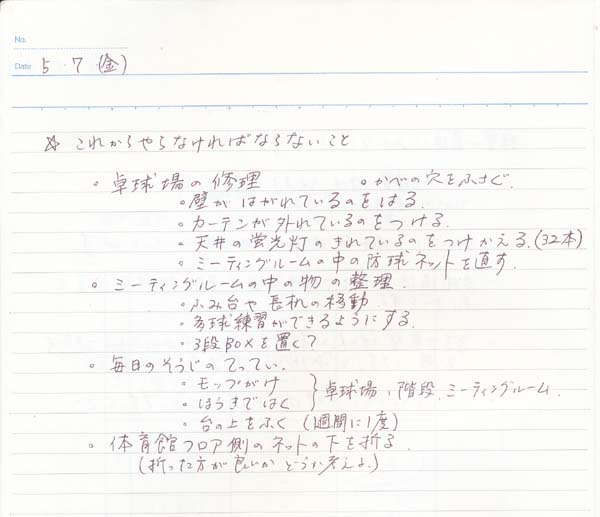 No.
Date 5・7 (金)
☆ これからやらなければならないこと
・卓球場の修理 ・かべの穴をふさぐ.
・壁がはがれているのをはる.
・カーテンが外れているのをつける.
・天井の蛍光灯のきれているのをつけかえる.(32本)
・ミーティングルームの中の防球ネットを直す.
・ミーティングルームの中の物の整理.
・ふみ台や長机の移動
・多球練習ができるようにする.
・3段BOXを置く?
・毎日のそうじのてってい.
・モップがけ
・ほうきではく } 卓球場、階段、ミーティングルーム.
・台の上をふく (1週間に1度)
・体育館フロア側のネットの下を折る.
(折った方が良いかどうか考える.)